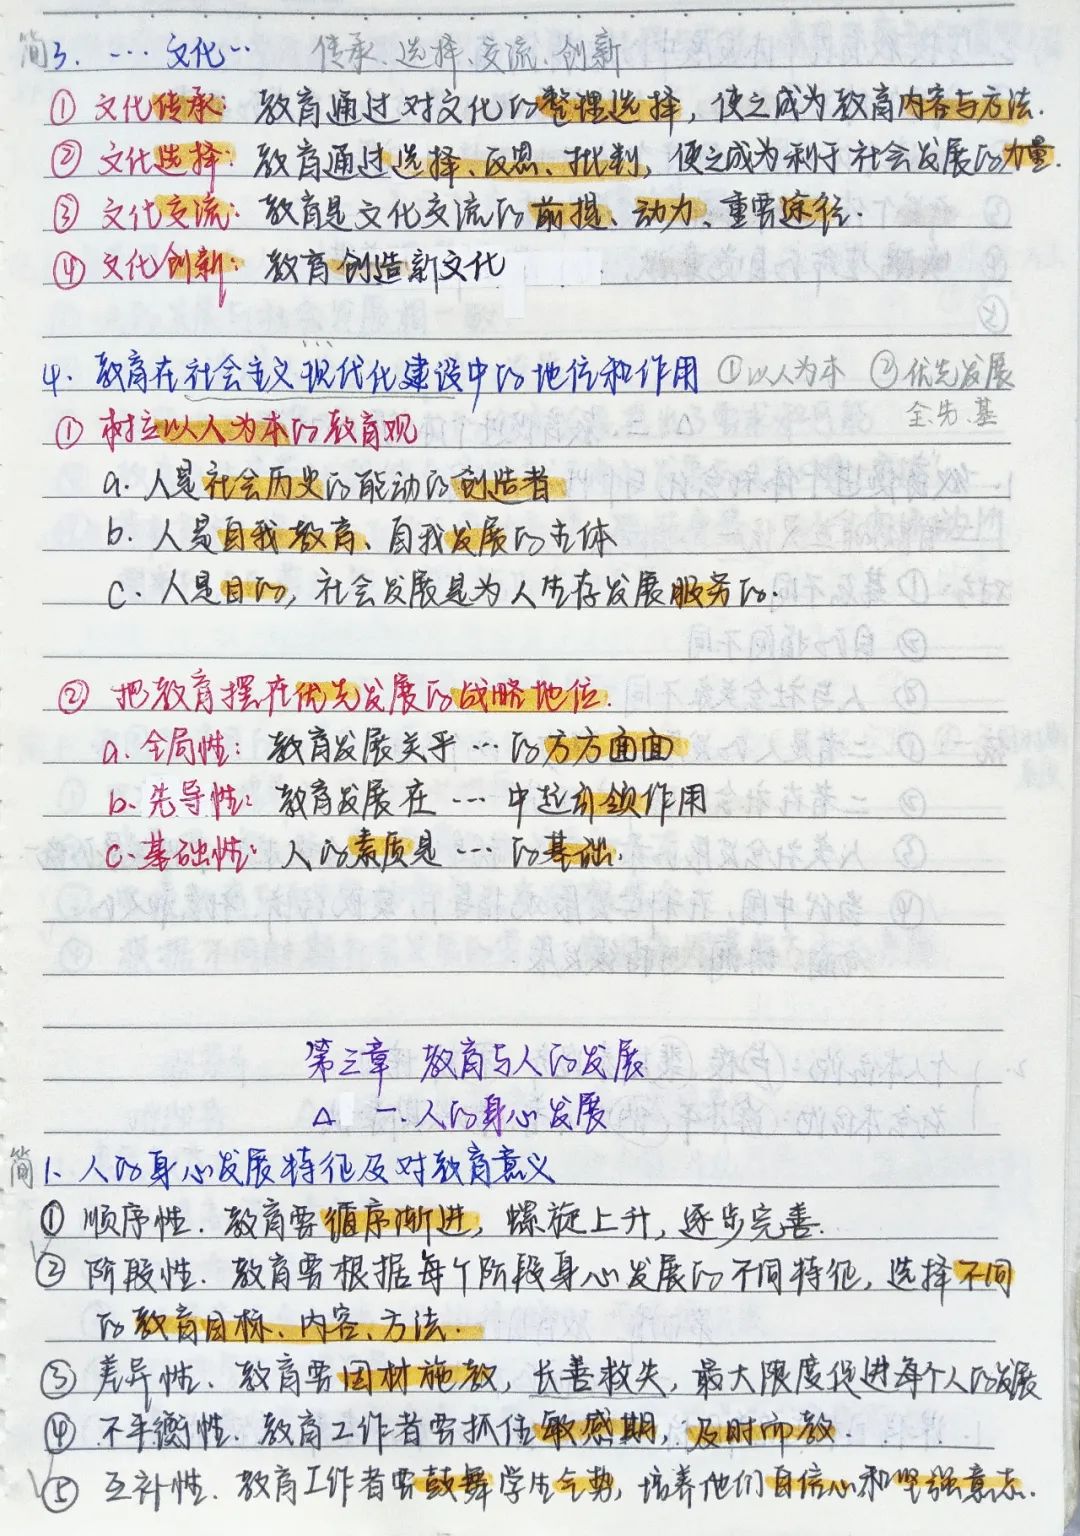 简 3. … 文化… 传承、选择、交流、创新
① 文化传承：教育通过对文化的整理选择，使之成为教育内容与方法.
② 文化选择：教育通过选择、反思、批判，使之成为利于社会发展的力量.
③ 文化交流：教育是文化交流的前提、动力、重要途径.
④ 文化创新：教育创造新文化
4. 教育在社会主义现代化建设中的地位和作用 ①以人为本 ②优先发展
全.先.基
① 树立以人为本的教育观
a. 人是社会历史的能动的创造者
b. 人是自我教育、自我发展的主体
c. 人是目的，社会发展是为人生存发展服务的.
② 把教育摆在优先发展的战略地位.
a. 全局性：教育发展关乎…的方方面面
b. 先导性：教育发展在…中起引领作用
c. 基础性：人的素质是…的基础.
第三章 教育与人的发展
△ 一.人的身心发展
简 1. 人的身心发展特征及对教育意义
① 顺序性. 教育要循序渐进，螺旋上升，逐步完善.
② 阶段性. 教育要根据每个阶段身心发展的不同特征，选择不同
的教育目标、内容、方法.
③ 差异性. 教育要因材施教，长善救失，最大限度促进每个人的发展
④ 不平衡性. 教育工作者要抓住敏感期，及时而教.
⑤ 互补性. 教育工作者要鼓舞学生气势，培养他们自信心和坚强意志.